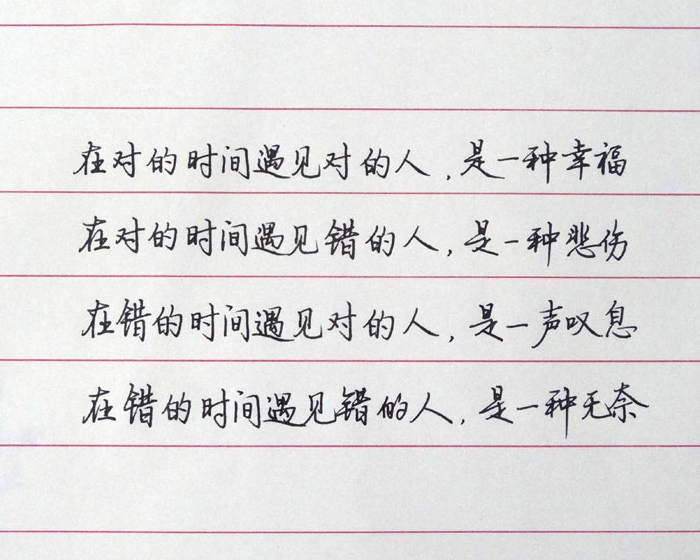 在对的时间遇见对的人，是一种幸福
在对的时间遇见错的人，是一种悲伤
在错的时间遇见对的人，是一声叹息
在错的时间遇见错的人，是一种无奈